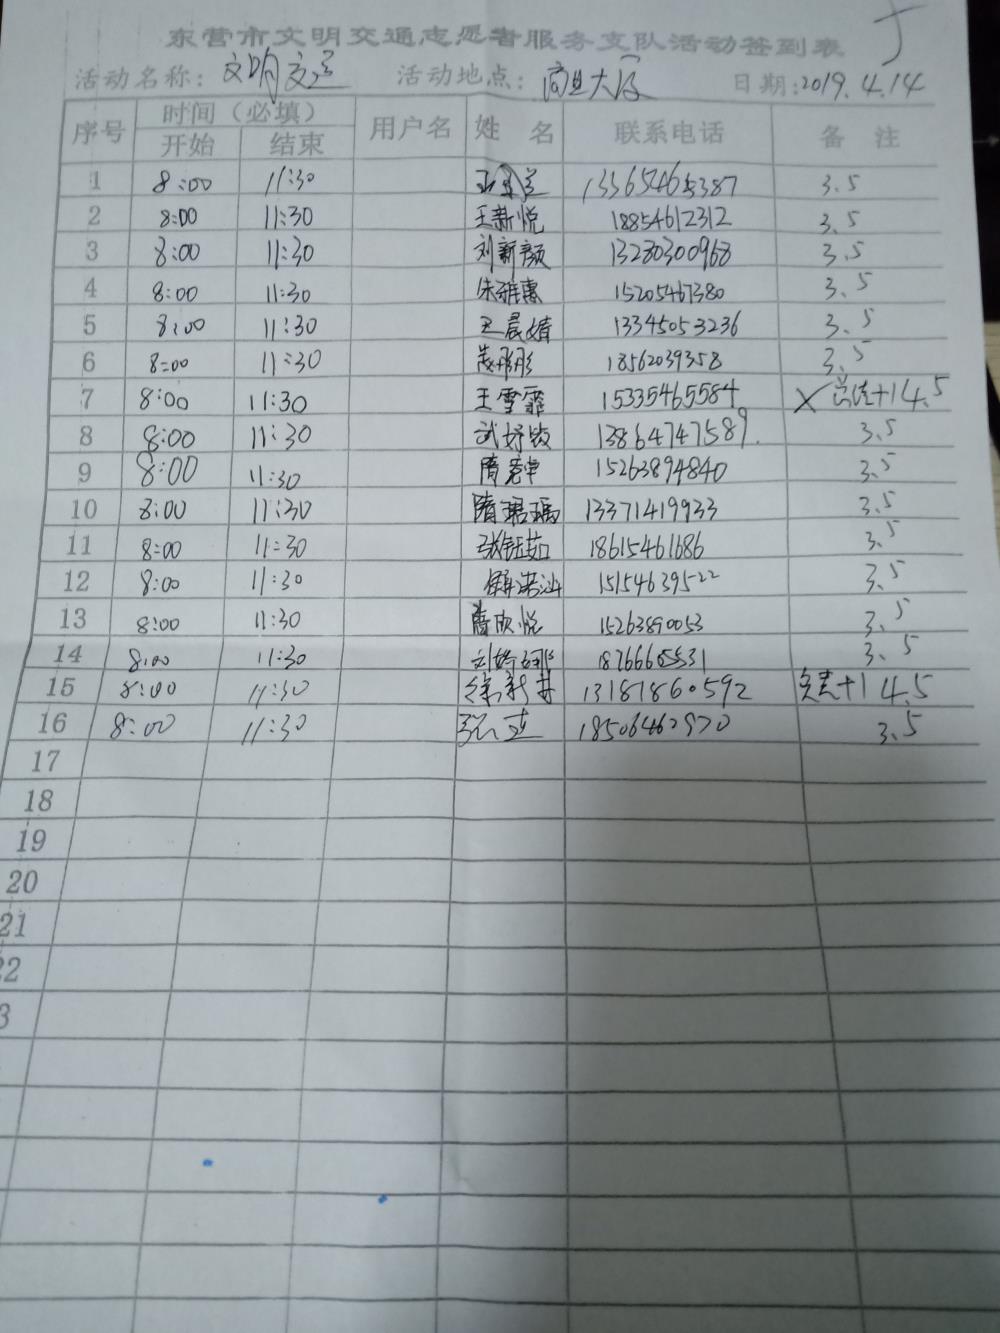 东营市文明交通志愿者服务支队活动签到表
活动名称：文明交通 活动地点：商旦大厦 日期：2019.4.14
序号 时间（必填） 用户名 姓名 联系电话 备注
开始 结束
1 8:00 11:30 3.5
2 8:00 11:30 王新悦 18854612312 3.5
3 8:00 11:30 刘新颜 13280300968 3.5
4 8:00 11:30 朱雅惠 15205467380 3.5
5 8:00 11:30 王晨婧 13345053236 3.5
6 8:00 11:30 18562039358 3.5
7 8:00 11:30 王雪霏 15335465584 +1 4.5
8 8:00 11:30 武妤璇 13864747589 3.5
9 8:00 11:30 隋 15263894840 3.5
10 8:00 11:30 隋珺瑀 13371419933 3.5
11 8:00 11:30 张钰茹 18615461686 3.5
12 8:00 11:30 15154639522 3.5
13 8:00 11:30 隋欣悦 15263890053 3.5
14 8:00 11:30 刘婷娜 3.5
15 8:00 11:30 徐新 13181860592 负责+1 4.5
16 8:00 11:30 3.5
17
18
19
20
21